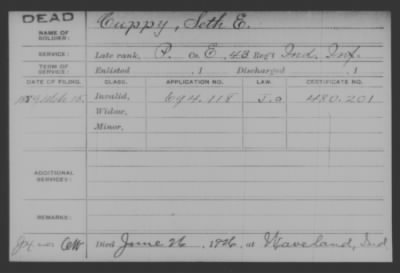 DEAD
NAME OF SOLDIER: Cuppy, Seth E.
SERVICE: Late rank, P. Co. E, 43 Reg't Ind. Inf.
TERM OF SERVICE: Enlisted , 1 Discharged , 1
DATE OF FILING. CLASS. APPLICATION NO. LAW. CERTIFICATE NO.
Invalid, 694.118 480.201
Widow,
Minor,
ADDITIONAL SERVICES:
REMARKS:
Died June 26, 1926, at Waveland, Ind